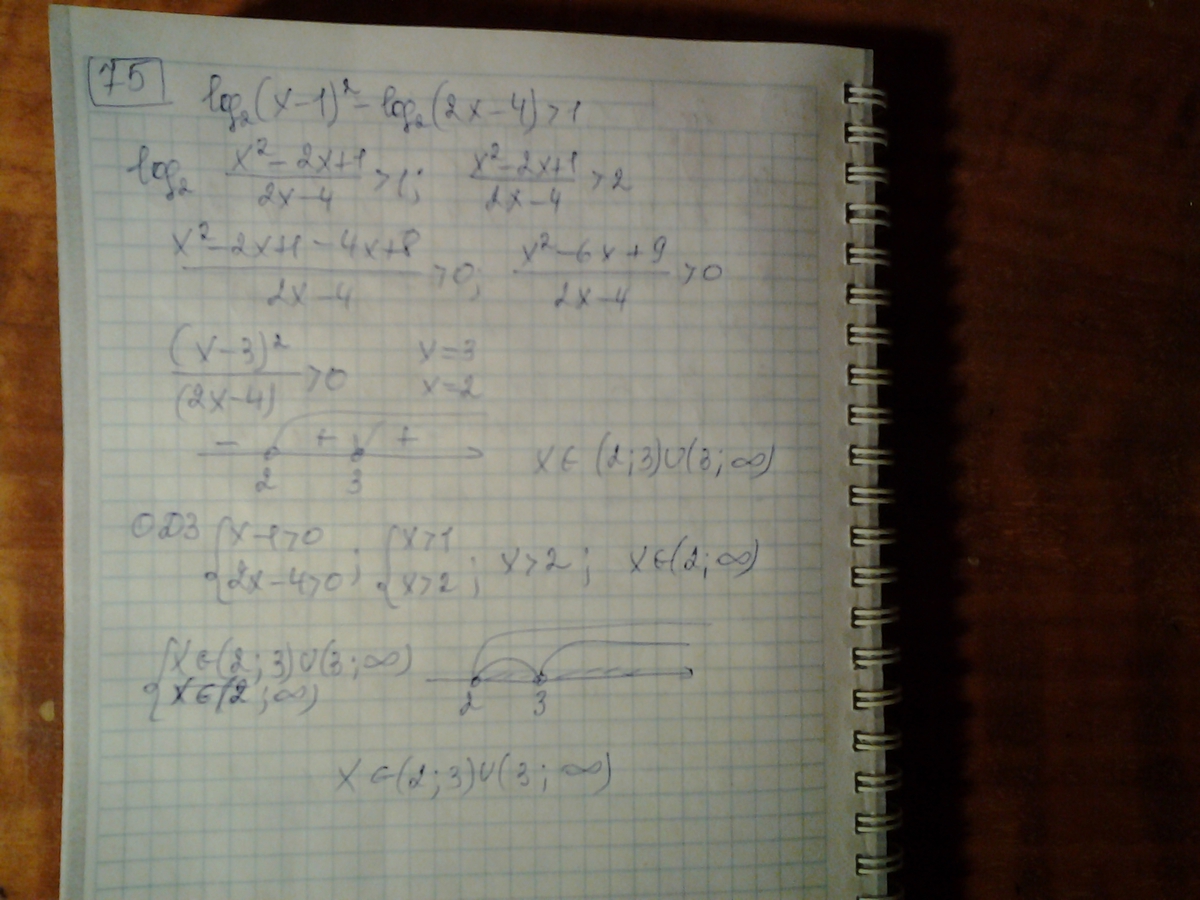 75 log₂(x-1)² - log₂(2x-4)>1
log₂ (x²-2x+1)/(2x-4) >1; (x²-2x+1)/(2x-4) >2
(x²-2x+1-4x+8)/(2x-4) >0; (x²-6x+9)/(2x-4) >0
(x-3)²/(2x-4) >0 x=3
x=2
- + +
2 3 x∈(2;3)∪(3;∞)
ОДЗ {x-1>0 ; {x>1 ; x>2; x∈(2;∞)
2x-4>0 x>2
{x∈(2;3)∪(3;∞)
x∈(2;∞) 2 3
x∈(2;3)∪(3;∞)